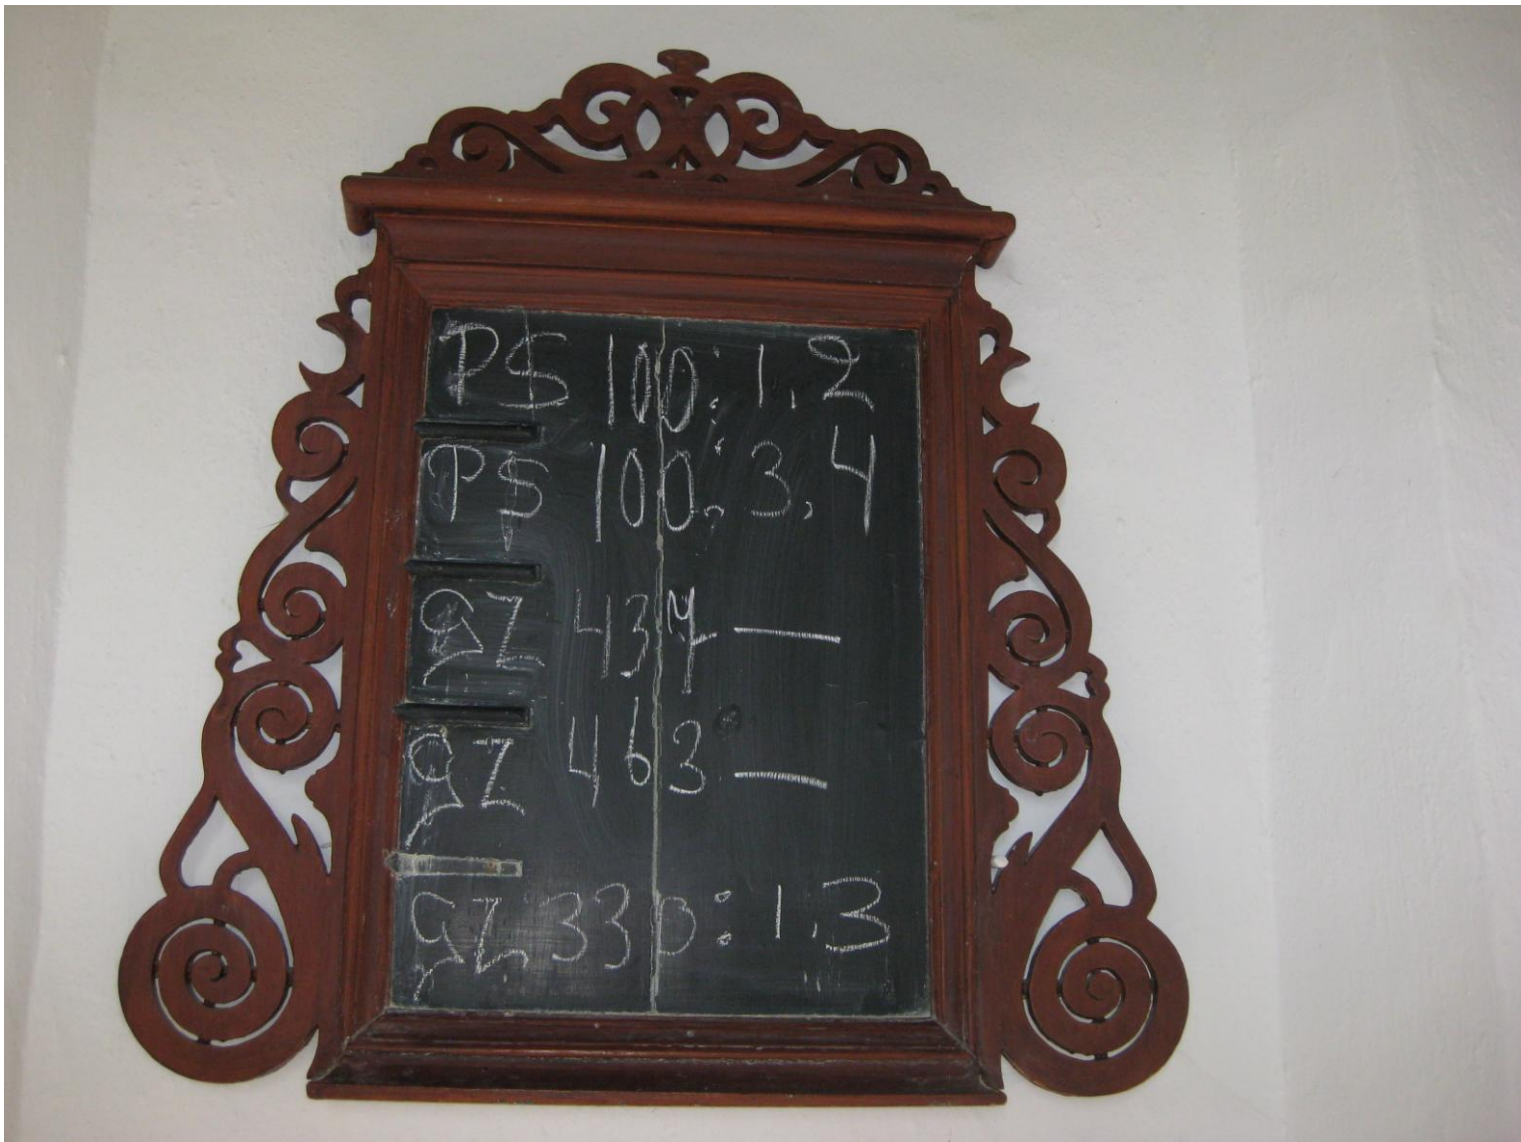 PS 100: 1, 2
PS 100: 3, 4
gZ 437 —
gZ 463 —
gZ 330: 1.3